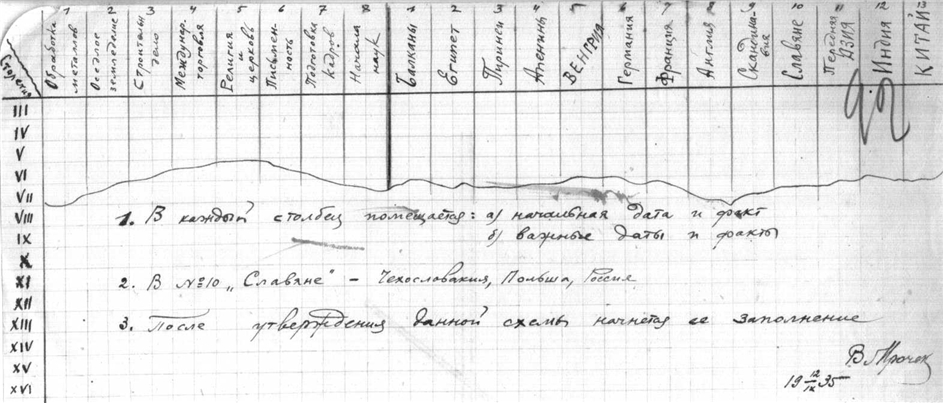 Столетия
1 2 3 4 5 6 7 8 1 2 3 4 5 6 7 8 9 10 11 12 13
Обработка металлов
Оседлое земледелие
Строительн. дело
Междунар. торговля
Религия и церковь
Письменность
Подготовка кадров
Начала наук
Балканы
Египет
Пиринеи
Апенины
ВЕНГРИЯ
Германия
Франция
Англия
Скандинавия
Славяне
Передняя АЗИЯ
Индия
КИТАЙ
III
IV
V
VI
VII
VIII
IX
X
XI
XII
XIII
XIV
XV
XVI
1. В каждый столбец помещается: а) начальная дата и факт
б) важные даты и факты
2. В №10 „Славяне" – Чехословакия, Польша, Россия
3. После утверждения данной схемы начнется ее заполнение
В Мрочек
19 12/IX 35